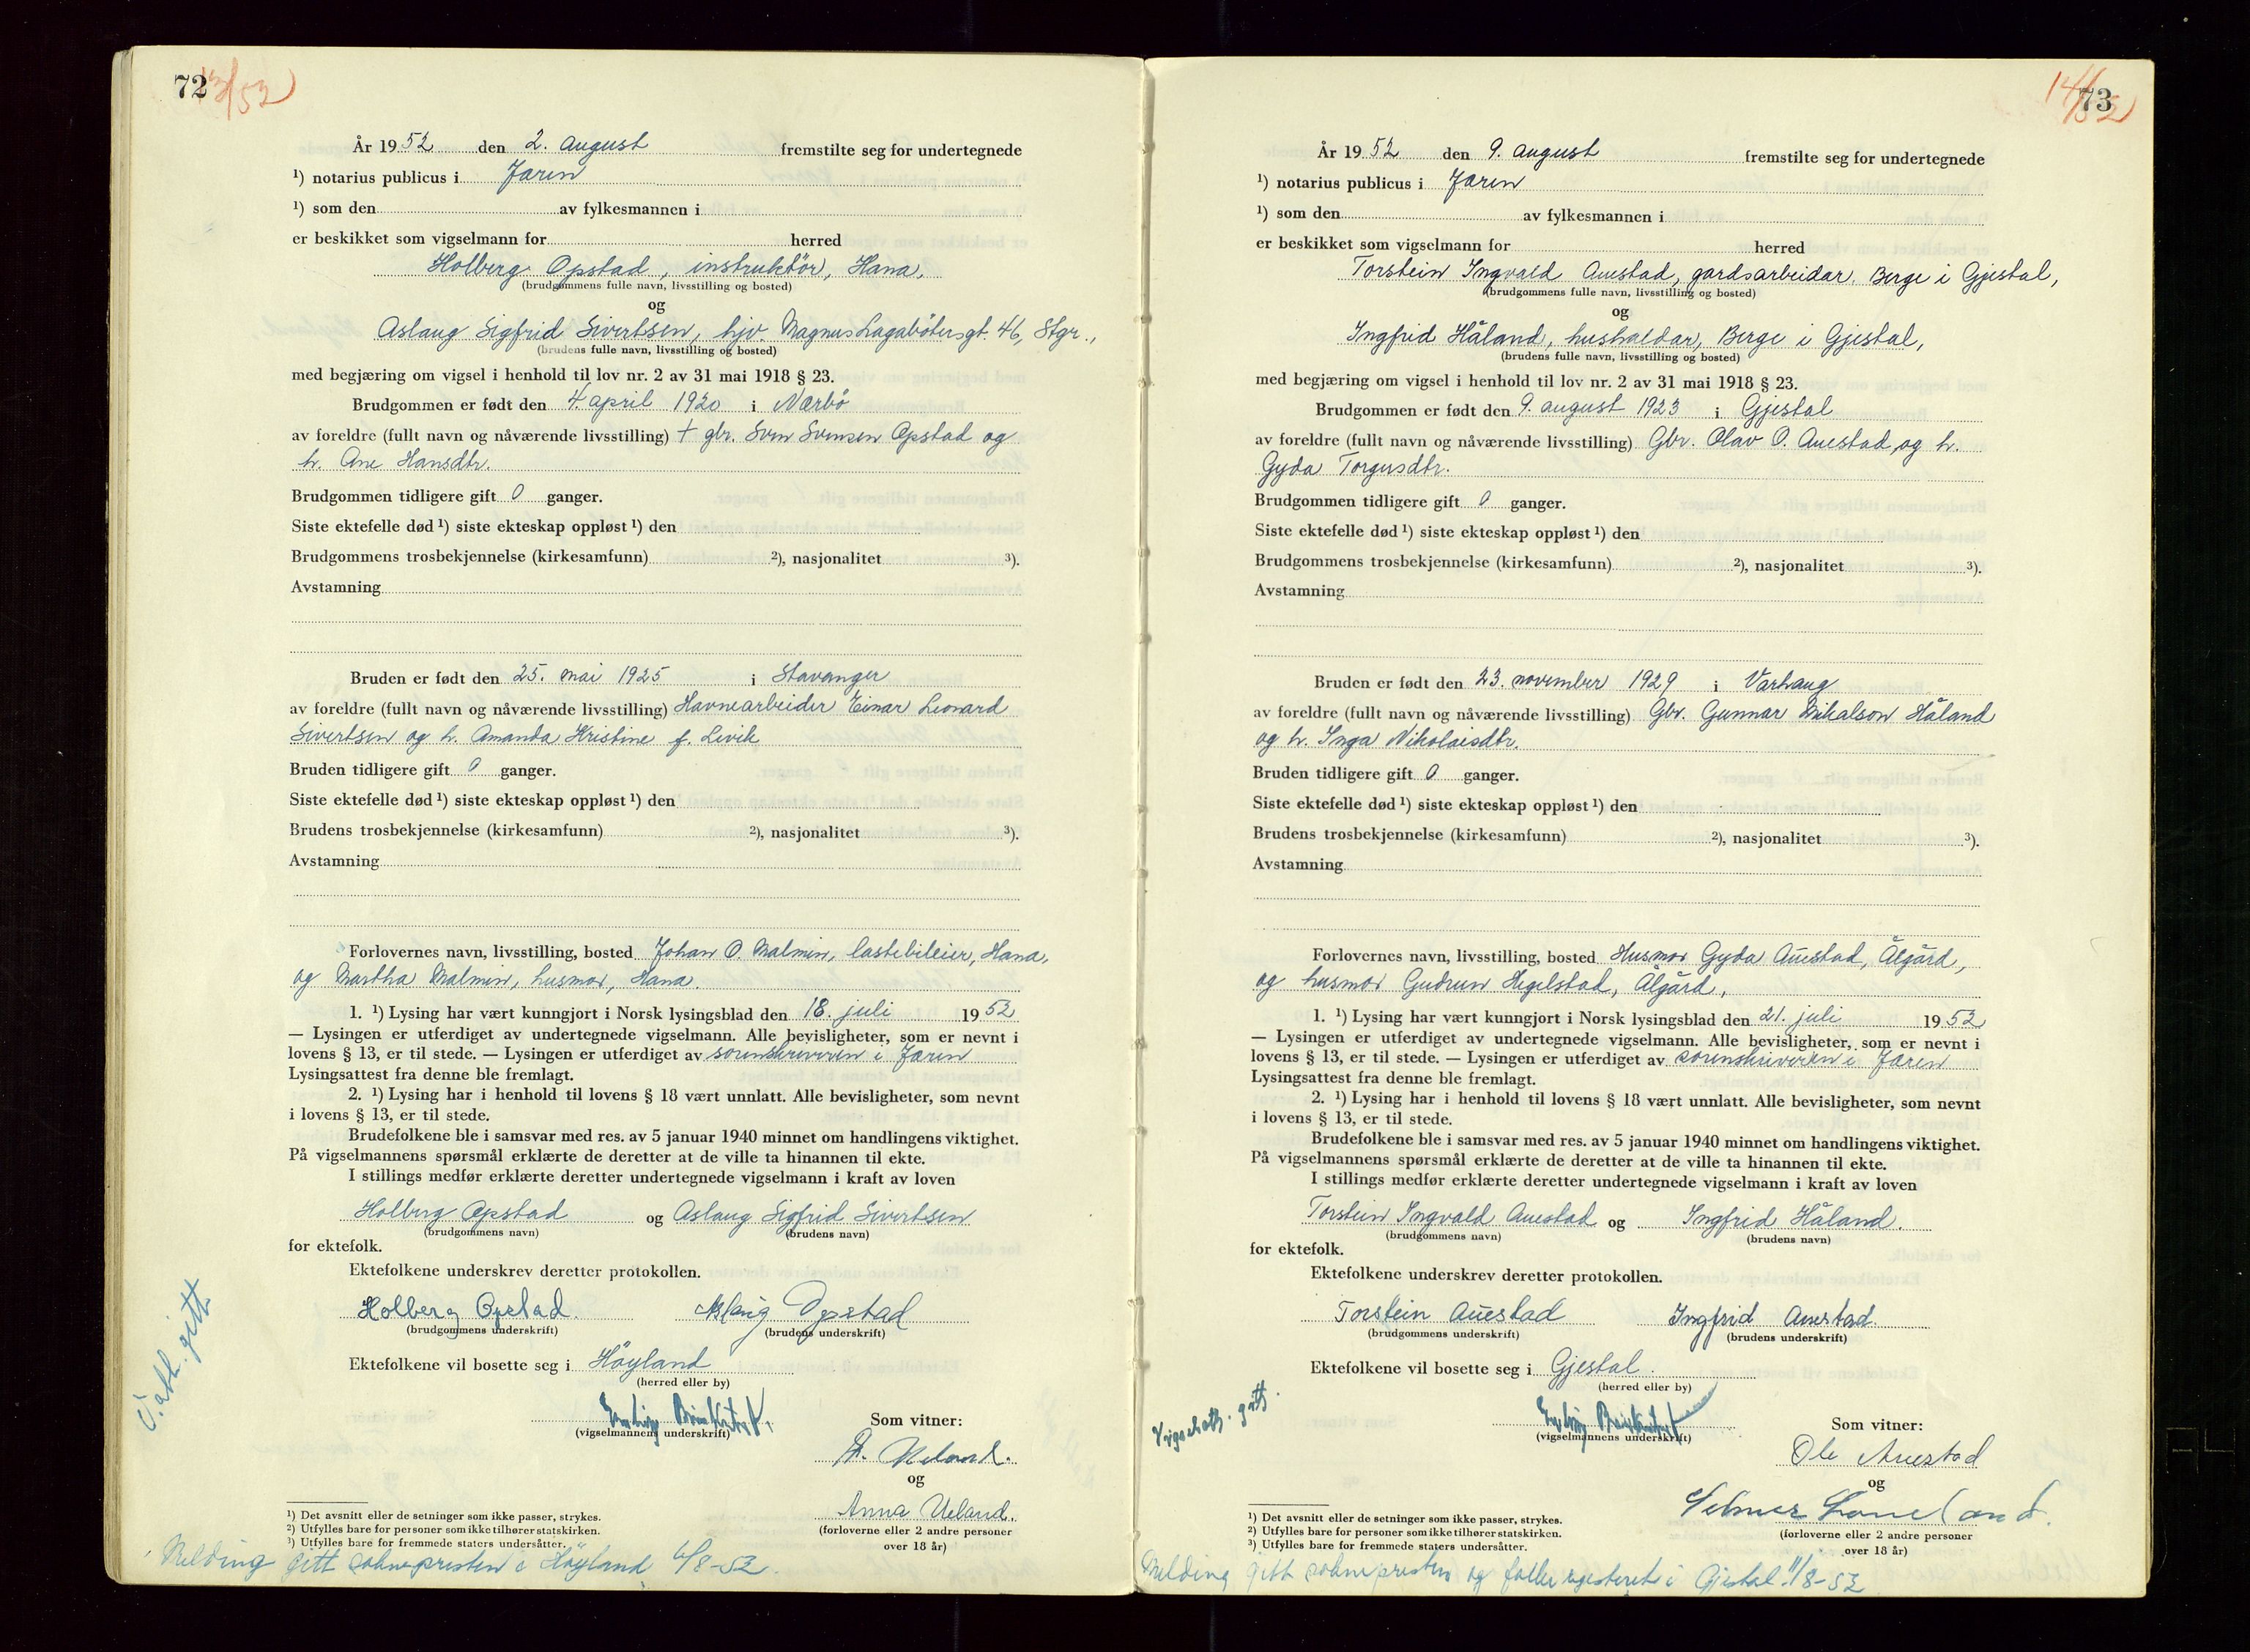 72
13/52
År 1952 den 2. august fremstilte seg for undertegnede
¹) notarius publicus i Jæren
¹) som den av fylkesmannen i
er beskikket som vigselmann for herred
Holberg Opstad, instruktör, Hana,
(brudgommens fulle navn, livsstilling og bosted)
og
Aslaug Sigfrid Sivertsen, hjv. Magnus Lagabötersgt. 46, Stgr.,
(brudens fulle navn, livsstilling og bosted)
med begjæring om vigsel i henhold til lov nr. 2 av 31 mai 1918 § 23.
Brudgommen er født den 4. april 1920 i Nærbö
av foreldre (fullt navn og nåværende livsstilling) + gbr. Sven Svensen Opstad og
h. Ane Hansdtr.
Brudgommen tidligere gift 0 ganger.
Siste ektefelle død ¹) siste ekteskap oppløst ¹) den
Brudgommens trosbekjennelse (kirkesamfunn) ²), nasjonalitet ³).
Avstamning
Bruden er født den 25. mai 1925 i Stavanger
av foreldre (fullt navn og nåværende livsstilling) Havnearbeider Einar Leonard
Sivertsen og h. Amanda Kristine f. Levik
Bruden tidligere gift 0 ganger.
Siste ektefelle død ¹) siste ekteskap oppløst ¹) den
Brudens trosbekjennelse (kirkesamfunn) ²), nasjonalitet ³).
Avstamning
Forlovernes navn, livsstilling, bosted Johan O. Malmin, lastebileier, Hana,
og Martha Malmin, husmor, Hana.
1. ¹) Lysing har vært kunngjort i Norsk lysingsblad den 18. juli 1952
— Lysingen er utferdiget av undertegnede vigselmann. Alle bevisligheter, som er nevnt i
lovens § 13, er til stede. — Lysingen er utferdiget av sorenskriveren i Jæren
Lysingsattest fra denne ble fremlagt.
2. ¹) Lysing har i henhold til lovens § 18 vært unnlatt. Alle bevisligheter, som nevnt
i lovens § 13, er til stede.
Brudefolkene ble i samsvar med res. av 5 januar 1940 minnet om handlingens viktighet.
På vigselmannens spørsmål erklærte de deretter at de ville ta hinannen til ekte.
I stillings medfør erklærte deretter undertegnede vigselmann i kraft av loven
Holberg Opstad og Aslaug Sigfrid Sivertsen
(brudgommens navn) (brudens navn)
for ektefolk.
Ektefolkene underskrev deretter protokollen.
Holberg Opstad. Aslaug Opstad
(brudgommens underskrift) (brudens underskrift)
Ektefolkene vil bosette seg i Höyland
(herred eller by)
V.att. gitt
(vigselmannens underskrift)
Som vitner:
Ueland.
og
Anna Ueland.
(forloverne eller 2 andre personer
over 18 år)
¹) Det avsnitt eller de setninger som ikke passer, strykes.
²) Utfylles bare for personer som ikke tilhører statskirken.
³) Utfylles bare for fremmede staters undersåtter.
Melding gitt soknepresten i Höyland 6/8-52.
14/52
73
År 1952 den 9. august fremstilte seg for undertegnede
¹) notarius publicus i Jæren
¹) som den av fylkesmannen i
er beskikket som vigselmann for herred
Torstein Ingvald Auestad, gardsarbeidar, Berge i Gjestal,
(brudgommens fulle navn, livsstilling og bosted)
og
Ingfrid Håland, hushaldar, Berge i Gjestal,
(brudens fulle navn, livsstilling og bosted)
med begjæring om vigsel i henhold til lov nr. 2 av 31 mai 1918 § 23.
Brudgommen er født den 9. august 1923 i Gjestal
av foreldre (fullt navn og nåværende livsstilling) Gbr. Olav O. Auestad og h.
Gyda Torgersdtr.
Brudgommen tidligere gift 0 ganger.
Siste ektefelle død ¹) siste ekteskap oppløst ¹) den
Brudgommens trosbekjennelse (kirkesamfunn) ²), nasjonalitet ³).
Avstamning
Bruden er født den 23. november 1929 i Varhaug
av foreldre (fullt navn og nåværende livsstilling) Gbr. Gunnar Mikalson Håland
og h. Inga Nikolaisdtr.
Bruden tidligere gift 0 ganger.
Siste ektefelle død ¹) siste ekteskap oppløst ¹) den
Brudens trosbekjennelse (kirkesamfunn) ²), nasjonalitet ³).
Avstamning
Forlovernes navn, livsstilling, bosted Husmor Gyda Auestad, Ålgård,
og husmor Gudrun Hegelstad, Ålgård,
1. ¹) Lysing har vært kunngjort i Norsk lysingsblad den 21. juli 1952
— Lysingen er utferdiget av undertegnede vigselmann. Alle bevisligheter, som er nevnt i
lovens § 13, er til stede. — Lysingen er utferdiget av sorenskriveren i Jæren
Lysingsattest fra denne ble fremlagt.
2. ¹) Lysing har i henhold til lovens § 18 vært unnlatt. Alle bevisligheter, som nevnt
i lovens § 13, er til stede.
Brudefolkene ble i samsvar med res. av 5 januar 1940 minnet om handlingens viktighet.
På vigselmannens spørsmål erklærte de deretter at de ville ta hinannen til ekte.
I stillings medfør erklærte deretter undertegnede vigselmann i kraft av loven
Torstein Ingvald Auestad og Ingfrid Håland.
(brudgommens navn) (brudens navn)
for ektefolk.
Ektefolkene underskrev deretter protokollen.
Torstein Auestad Ingfrid Auestad.
(brudgommens underskrift) (brudens underskrift)
Ektefolkene vil bosette seg i Gjestal.
(herred eller by)
Vigselsatt. gitt.
(vigselmannens underskrift)
Som vitner:
Ole Auestad
og
(forloverne eller 2 andre personer
over 18 år)
¹) Det avsnitt eller de setninger som ikke passer, strykes.
²) Utfylles bare for personer som ikke tilhører statskirken.
³) Utfylles bare for fremmede staters undersåtter.
Melding gitt soknepresten og folkeregisteret i Gjestal 11/8-52